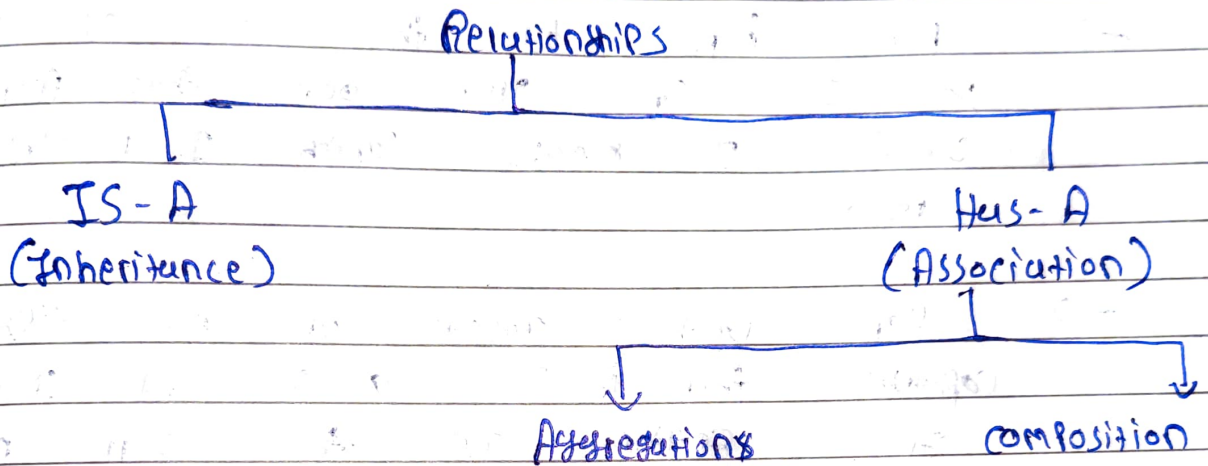 Relationships
IS-A
Has-A
(Inheritance)
(Association)
Aggregations
composition